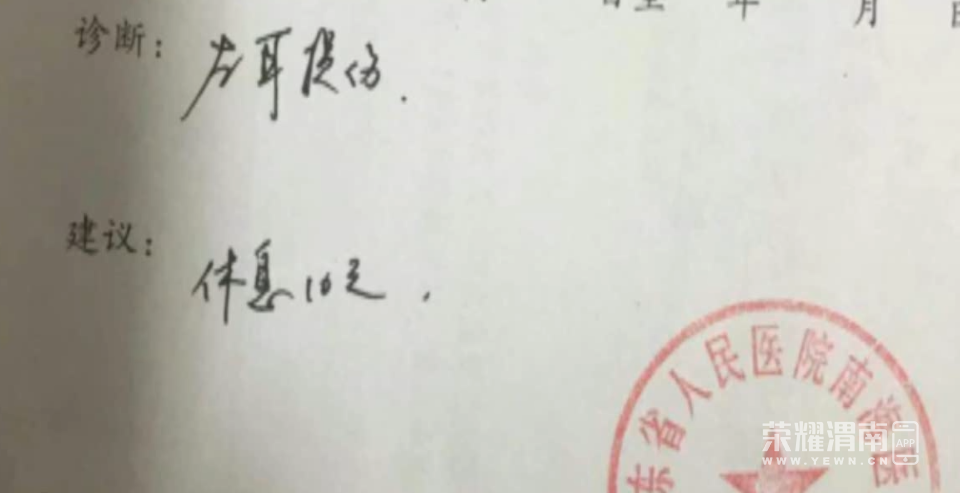 日至 年 月 日
诊断：左耳损伤．
建议：休息10天．
东省人民医院南海医
荣耀渭南 APP
WWW.YEWN.CN